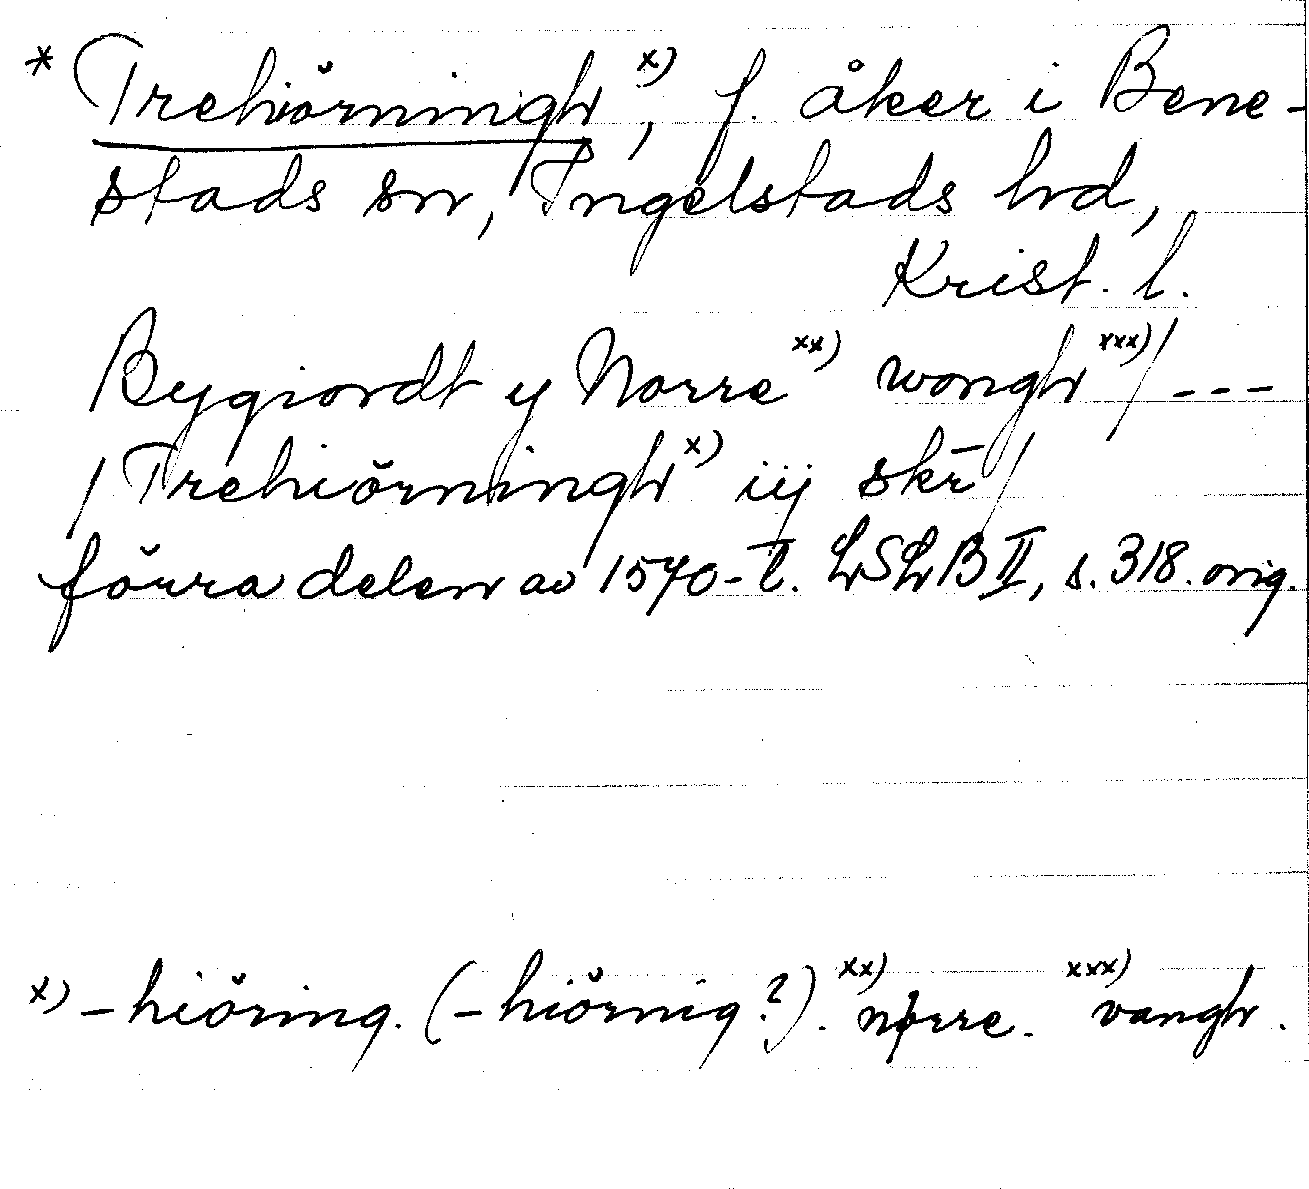 * Trehiŏrningh x), f. åker i Bene-
stads sn, Ingelstads hd,
Krist. l.
Bygiordt y Norre xx) wongh xxx) / ---
/ Trehiŏrningh x) iij skr̄ /
förra delen av 1570-t. LSLB II, s. 318. orig.
x) -hiŏring. (-hiŏrnig?). xx) nørre. xxx) vangh.